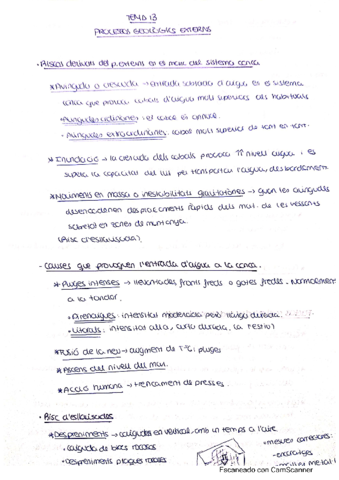 TEMA 13
PROCESSOS GEOLÒGICS EXTERNS
· Riscos derivats del moviment en el marc del sistema conca
* Avinguda o crescuda → entrada sobtada d'aigua en el sistema
conca que provoca cabals d'aigua molt superiors als habituals
· Avingudes ordinàries: el cabal és annual.
· Avingudes extraordinàries: cabal molt superior de tant en tant.
* Inundació → la crescuda dels cabals provoca ↑↑ nivell aigua i es
supera la capacitat del llit per transportar l'aigua desbordament
* Moviments en massa o inestabilitats gravitatòries → quan les avingudes
desencadenen desplaçaments ràpids dels mat. de les vessants
sobretot en zones de muntanya
(Risc d'esllavissada)
- Causes que provoquen l'entrada d'aigua a la conca.
* Pluges intenses → llevantades fronts freds o gotes fredes. Normalment
a la tardor.
· Pirenaiques: intensitat moderada però llarga durada.
· Litorals: intensitat alta, curta durada,
* Fusió de la neu → augment de Tª i pluges
* Ascens del nivell del mar.
* Acció humana → trencament de preses.
· Risc d'esllavissades
* Despreniments → caigudes en vertical amb un temps a l'aire
· caiguda de blocs rocosos
· despreniments plaques rocoses
* mesures correctores:
- ancoratges
Escaneado con CamScanner